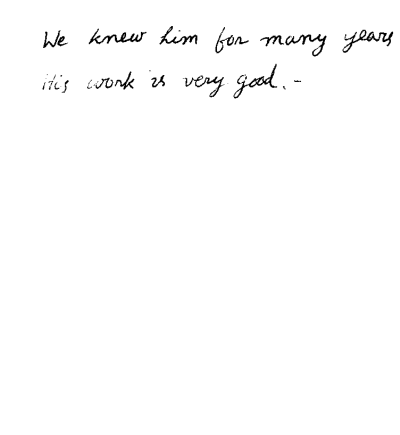 We knew him for many years
His work is very good. -